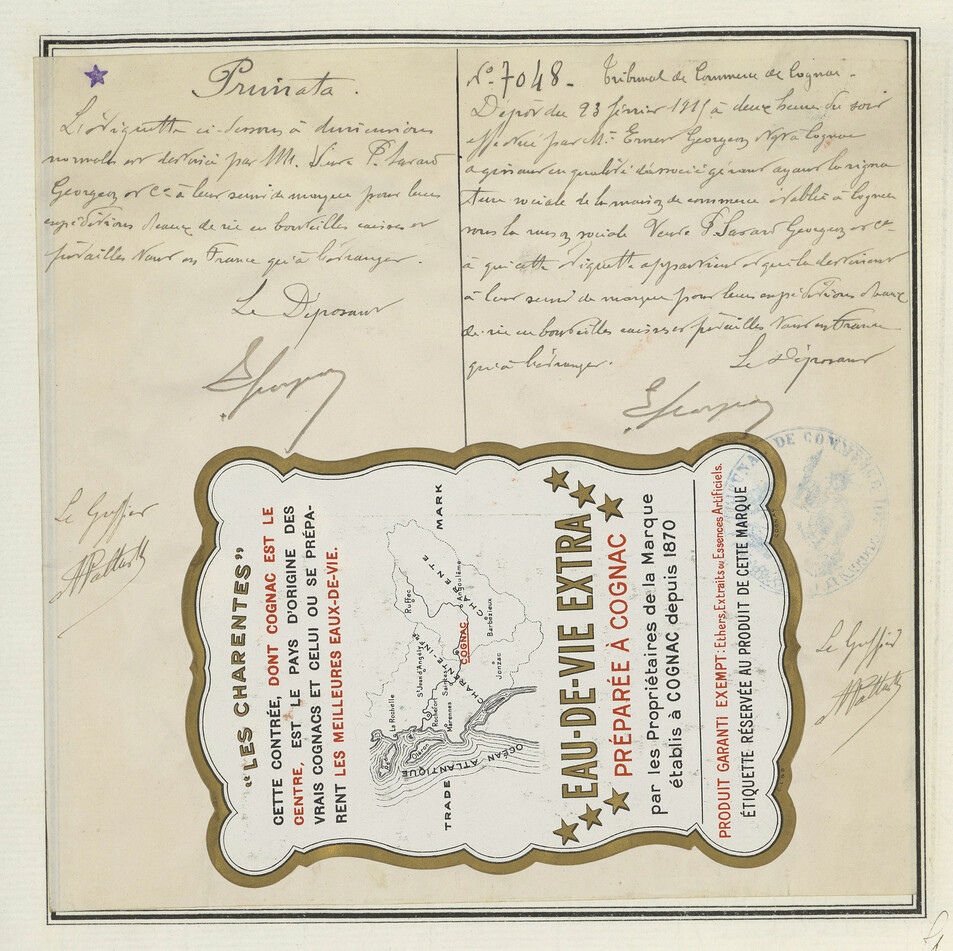 Primata.
L'étiquette ci-dessous à dimensions
normales est destinée par Mr. Veuve P. Savard
Georgeon et Cie à leur servir de marque pour leurs
expéditions d'eaux de vie en bouteilles caisses et
futailles tant en France qu'à l'étranger.
Le Déposant
Le Greffier
No. 7048 - Tribunal de Commerce de Cognac -
Dépôt du 23 février 1915 à deux heures du soir
effectué par Mr. Ernest Georgeon Ngt à Cognac
agissant en qualité d'associé gérant ayant la signa
ture sociale de la maison de commerce établie à Cognac
sous la raison sociale Veuve P. Savard Georgeon et Cie
à qui cette étiquette appartient et qui la destinent
à leur servir de marque pour leurs expéditions d'eaux
de vie en bouteilles caisses et futailles tant en France
qu'à l'étranger.
Le Déposant
Le Greffier
"LES CHARENTES"
CETTE CONTRÉE, DONT COGNAC EST LE
CENTRE, EST LE PAYS D'ORIGINE DES
VRAIS COGNACS ET CELUI OU SE PRÉPA-
RENT LES MEILLEURES EAUX-DE-VIE.
TRADE MARK
OCÉAN ATLANTIQUE
La Rochelle
Rochefort
Marennes
St Jean d'Angély
Saintes
COGNAC
Ruffec
Angoulême
Barbezieux
Jonzac
CHARENTE
EAU-DE-VIE EXTRA
PRÉPARÉE À COGNAC
par les Propriétaires de la Marque
établis à COGNAC depuis 1870
PRODUIT GARANTI EXEMPT: Ethers, Extraits ou Essences Artificiels.
ÉTIQUETTE RÉSERVÉE AU PRODUIT DE CETTE MARQUE